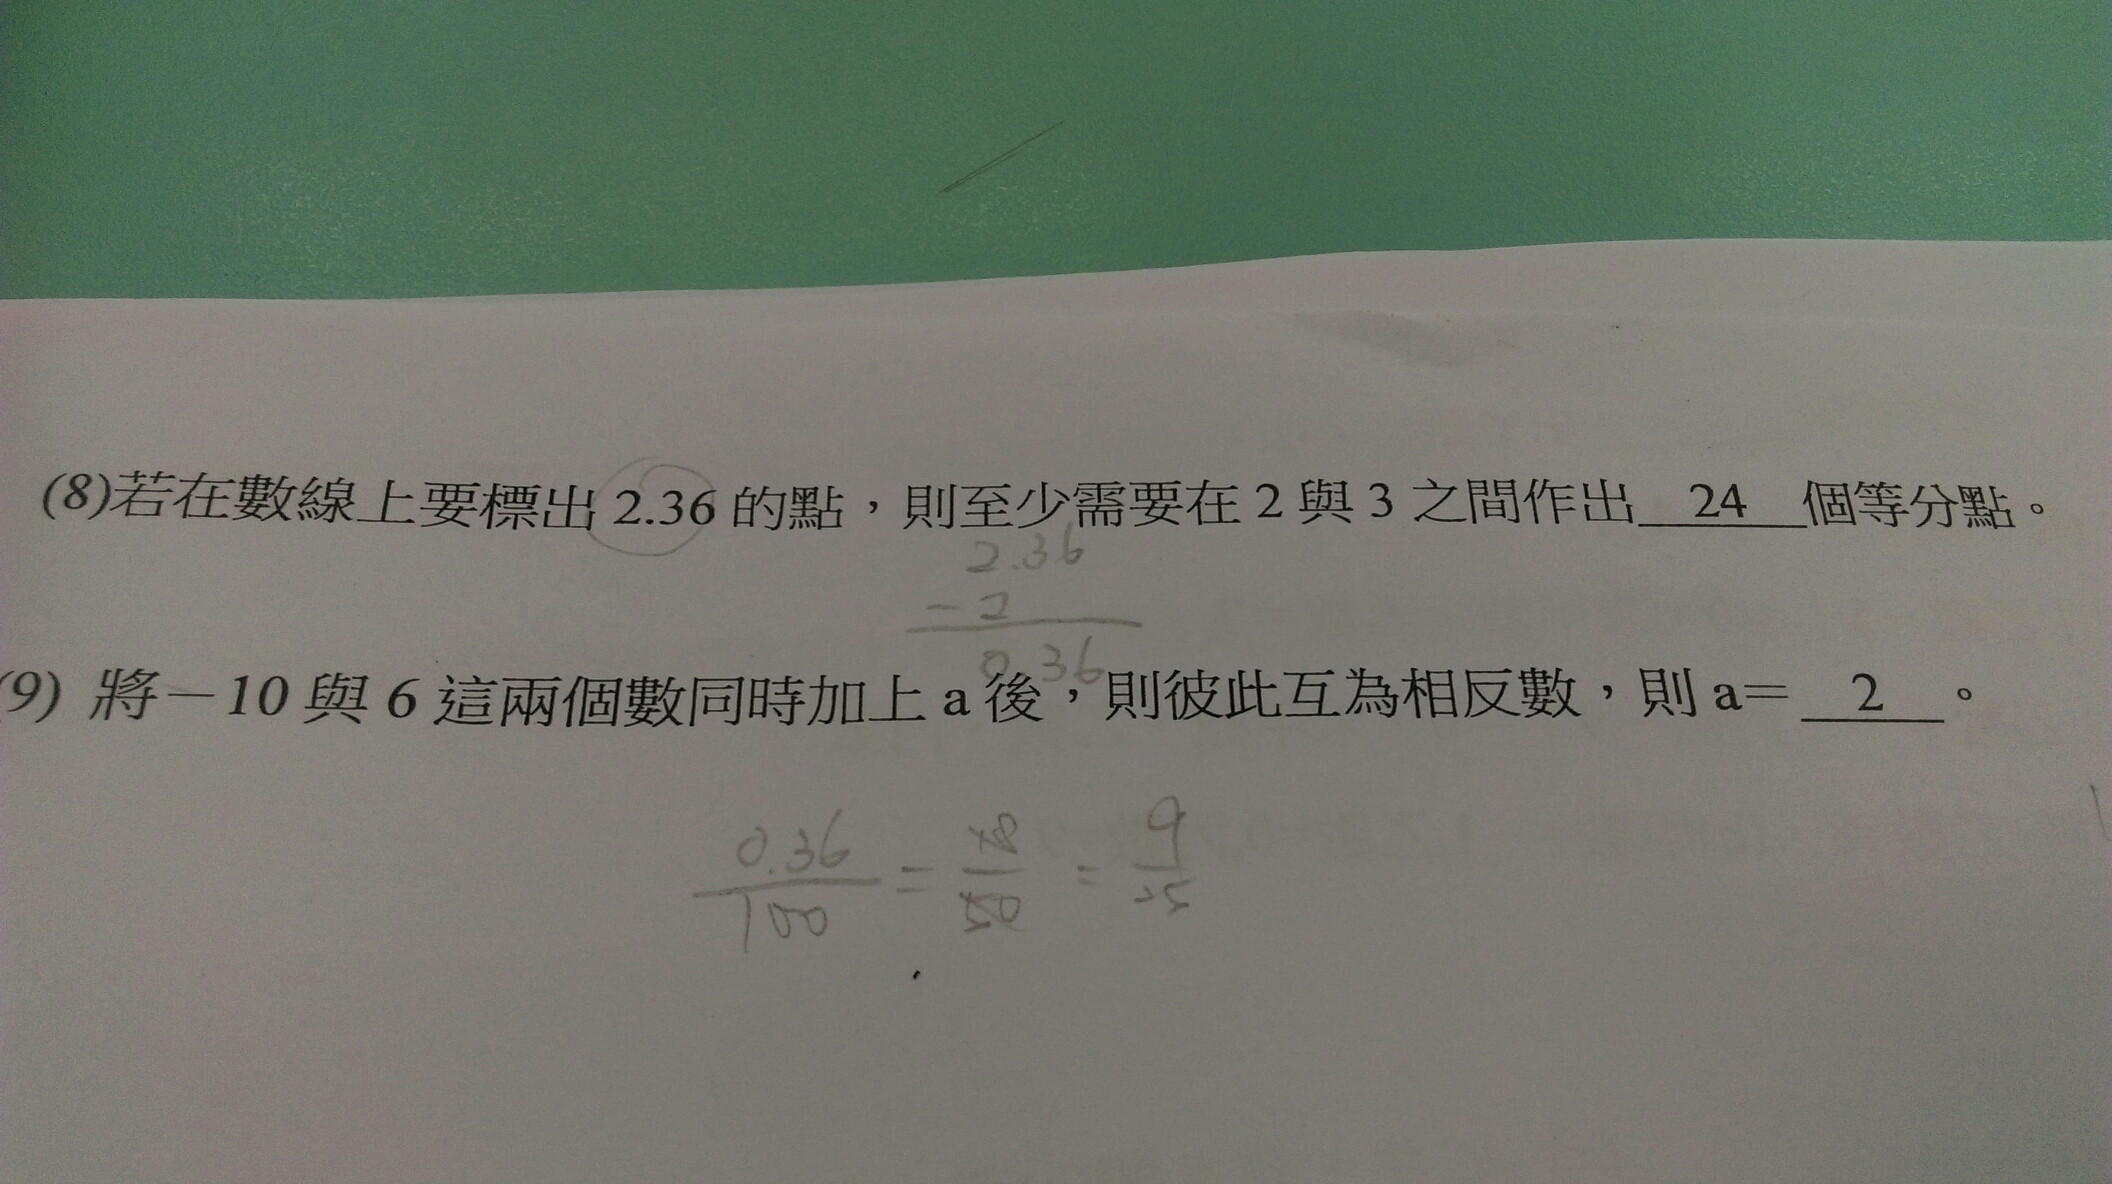 (8)若在數線上要標出 2.36 的點，則至少需要在 2 與 3 之間作出 24 個等分點。
2.36
-2
0.36
(9) 將－10 與 6 這兩個數同時加上 a 後，則彼此互為相反數，則 a＝ 2 。
0.36/100 = 18/50 = 9/25